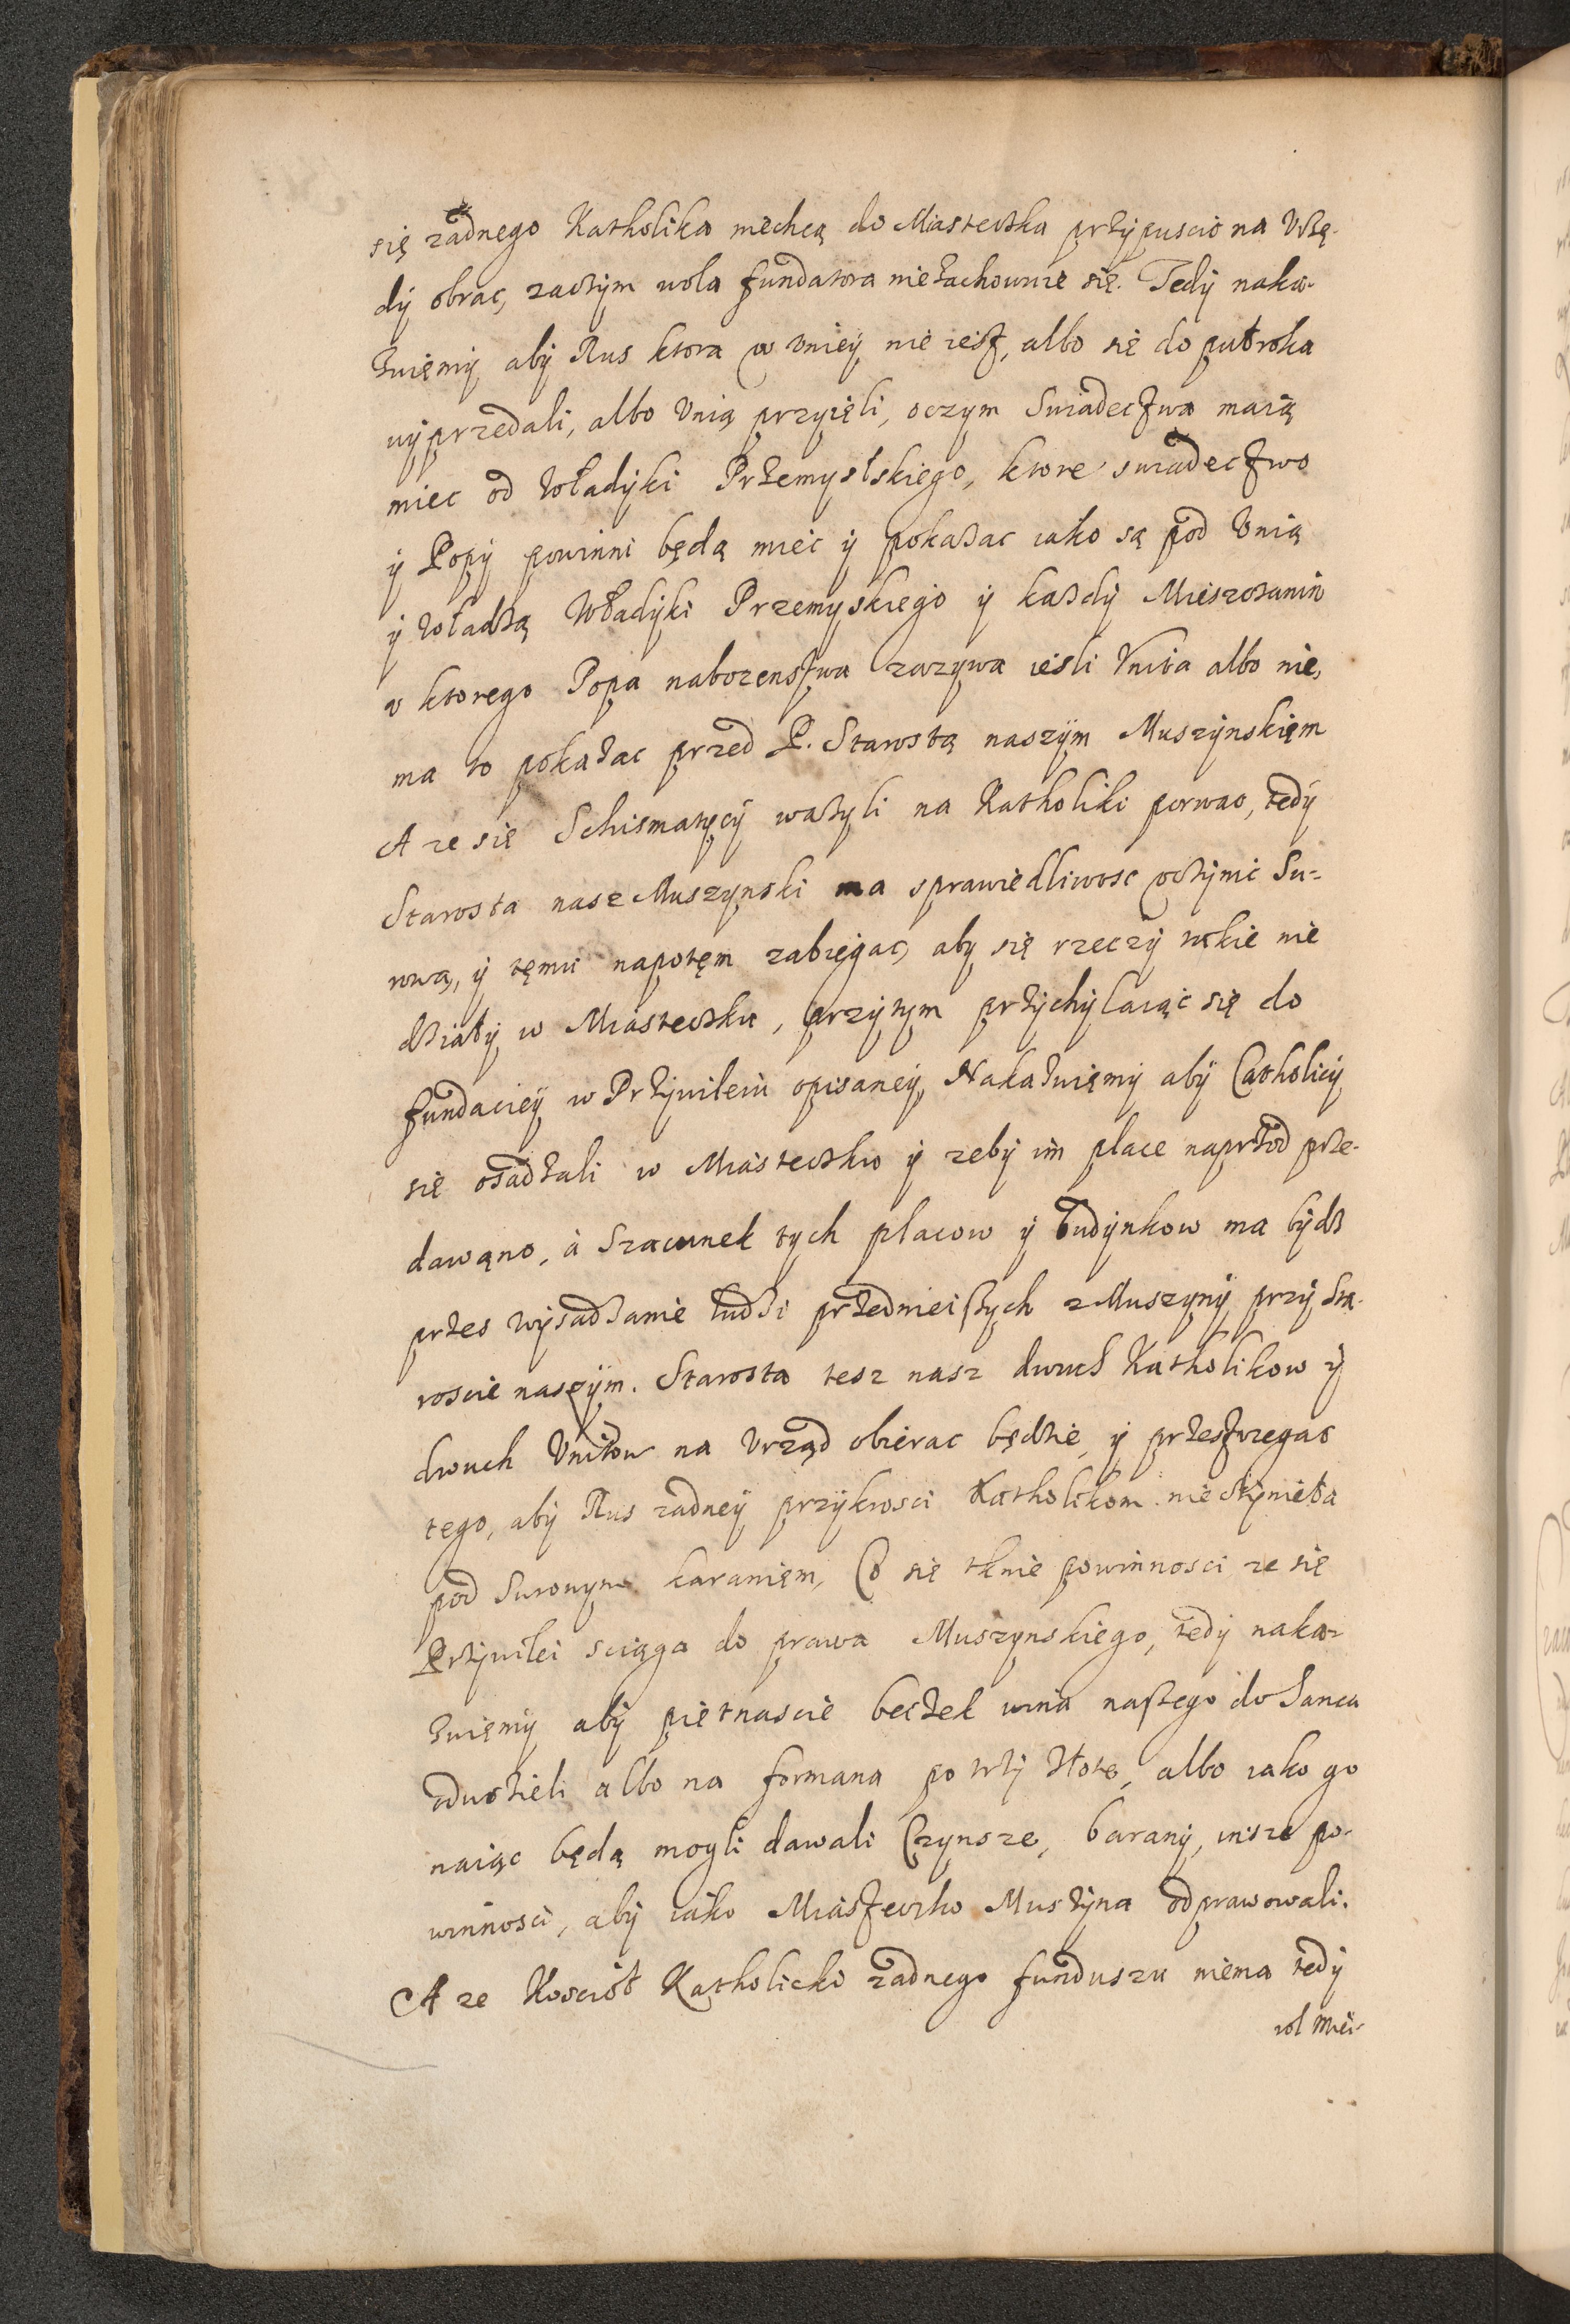 się zadnego Katholika niechcą do Miasteczka przypuscic na Vrzę-
dy obrac, zaczym wola fundatora niezachowuie się. Tedy naka-
zuięmy aby Rus ktora w vniey nie iest, albo się do pułroka
wyprzedali, albo Vnią przyięli, oczym Swiadectwa maią
miec od Władyki Przemysłskiego, ktore swiadectwo
y Popy powinni będą miec y pokazac iako są pod Vnią
y władzą Władyki Przemyskiego y kazdy Mieszczanin
v ktorego Popa nabozenstwa zazywa iesli Vnita albo nie,
ma to pokazac przed P. Starostą naszym Muszynskięm
A ze się Schismatycy wazyli na Katholiki porwac, tedy
Starosta nasz Muszynski ma sprawiedliwosc vczynic Su-
rową, y tęmu napotęm zabiegac, aby się rzeczy takie nie
działy w Miasteczku, przytym przychylaiąc się do
fundaciey w Przywileiu opisaney, Nakazuięmy aby Catholicy
się osadzali w Miasteczku y zeby im place naprzod prze-
dawąno, à Szacunek tych placow y budynkow ma bydz
przez wysadzanie ludzi przednieiszych z Muszyny przy Sta-
roscie naszym. Starosta tesz nasz dwuch Katholikow y
dwuch Vnitow na Vrząd obierac będzie, y przestrzegac
tego, aby Rus zadney przykrosci Katholikom nie czynieła
pod Surowym karanięm, Co się tknie powinnosci ze się
Przywilei sciąga do prawa Muszynskiego, tedy naka-
zuięmy aby piętnascie beczek wina naszego do Sanca
odwozieli albo na formana po trzy złote, albo iako go
naiąc będą mogli dawali Czynsze, barany, insze po-
winnosci, aby iako Miasteczko Muszyna odprawowali.
A ze Kosciół Katholicki zadnego funduszu niema tedy
rol Miei-